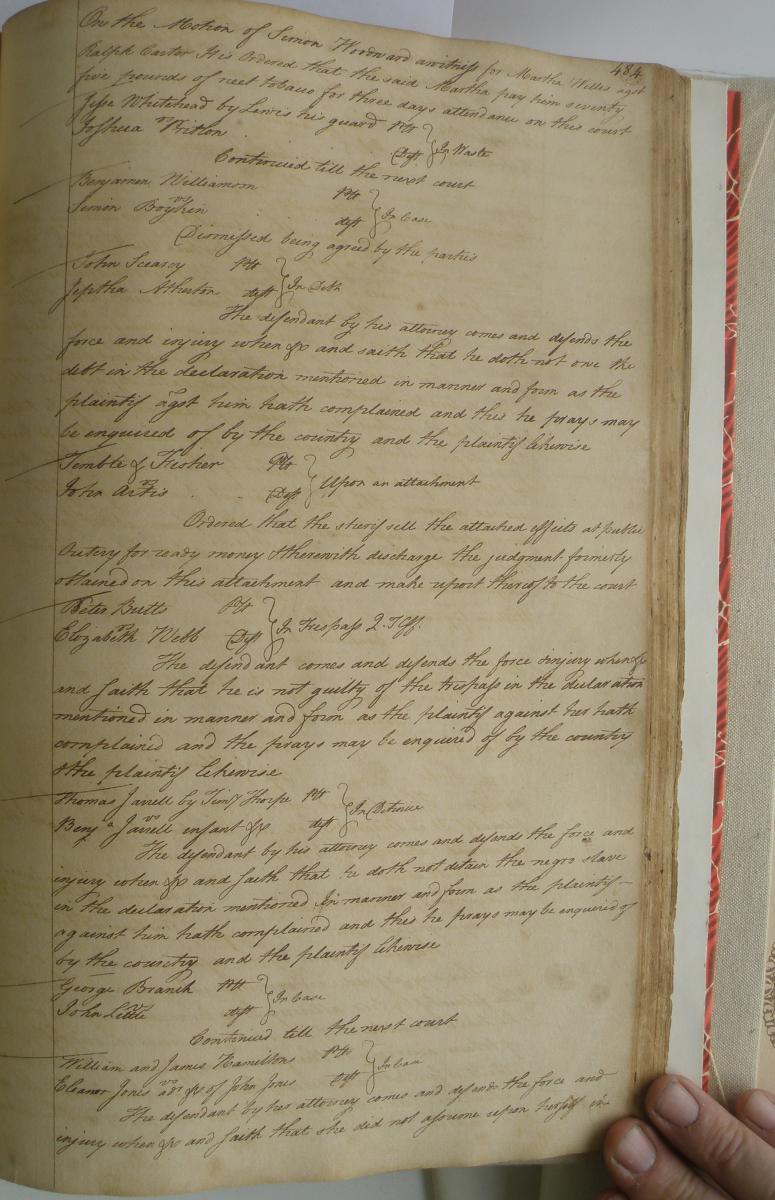 484
On the Motion of Simon Woodward a witness for Martha Willis agst
Ralph Carter It is Ordered that the said Martha pay him seventy
five pounds of neet tobacco for three days attendance on this court
Jesse Whitehead by Lewis his guard Plt
vs } In Waste
Joshua Britton Deft
Continued till the next court
Benjamin Williamson Plt
vs } In Case
Simon Boykin deft
Dismissed being agreed by the parties
John Scearcy Plt
} In Debt
Jeptha Atherton deft
The defendant by his attorney comes and defends the
force and injury when &c and saith that he doth not owe the
debt in the declaration mentioned in manner and form as the
plaintif agst him hath complained and this he prays may
be enquired of by the country and the plaintif likewise
Temble & Fisher Plt
vs } Upon an attachment
John Artis Deft
Ordered that the sherif sell the attached effects at public
Outcry for ready money & therewith discharge the judgment formerly
obtained on this attachment and make report thereof to the court
Peter Butts Plt
vs } In Trespass Q. T. Eff.
Elizabeth Webb Deft
The defendant comes and defends the force & injury when &c
and saith that he is not guilty of the trespass in the declaration
mentioned in manner and form as the plaintif against her hath
complained and the prays may be enquired of by the country
& the plaintif likewise
Thomas Jarrell by Timy Thorpe Plt
vs } In Detinue
Benja Jarrell infant &c deft
The defendant by his attorney comes and defends the force and
injury when &c and saith that he doth not detain the negro slave
in the declaration mentioned In manner and form as the plaintif
against him hath complained and this he prays may be enquired of
by the country and the plaintif likewise
George Branch Plt
vs } In Case
John Little deft
Continued till the next court
William and James Hamiltons Plts
vs } In Case
Eleanor Jones adx &c of John Jones Deft
The defendant by her attorney comes and defends the force and
injury when &c and saith that she did not assume upon herself in